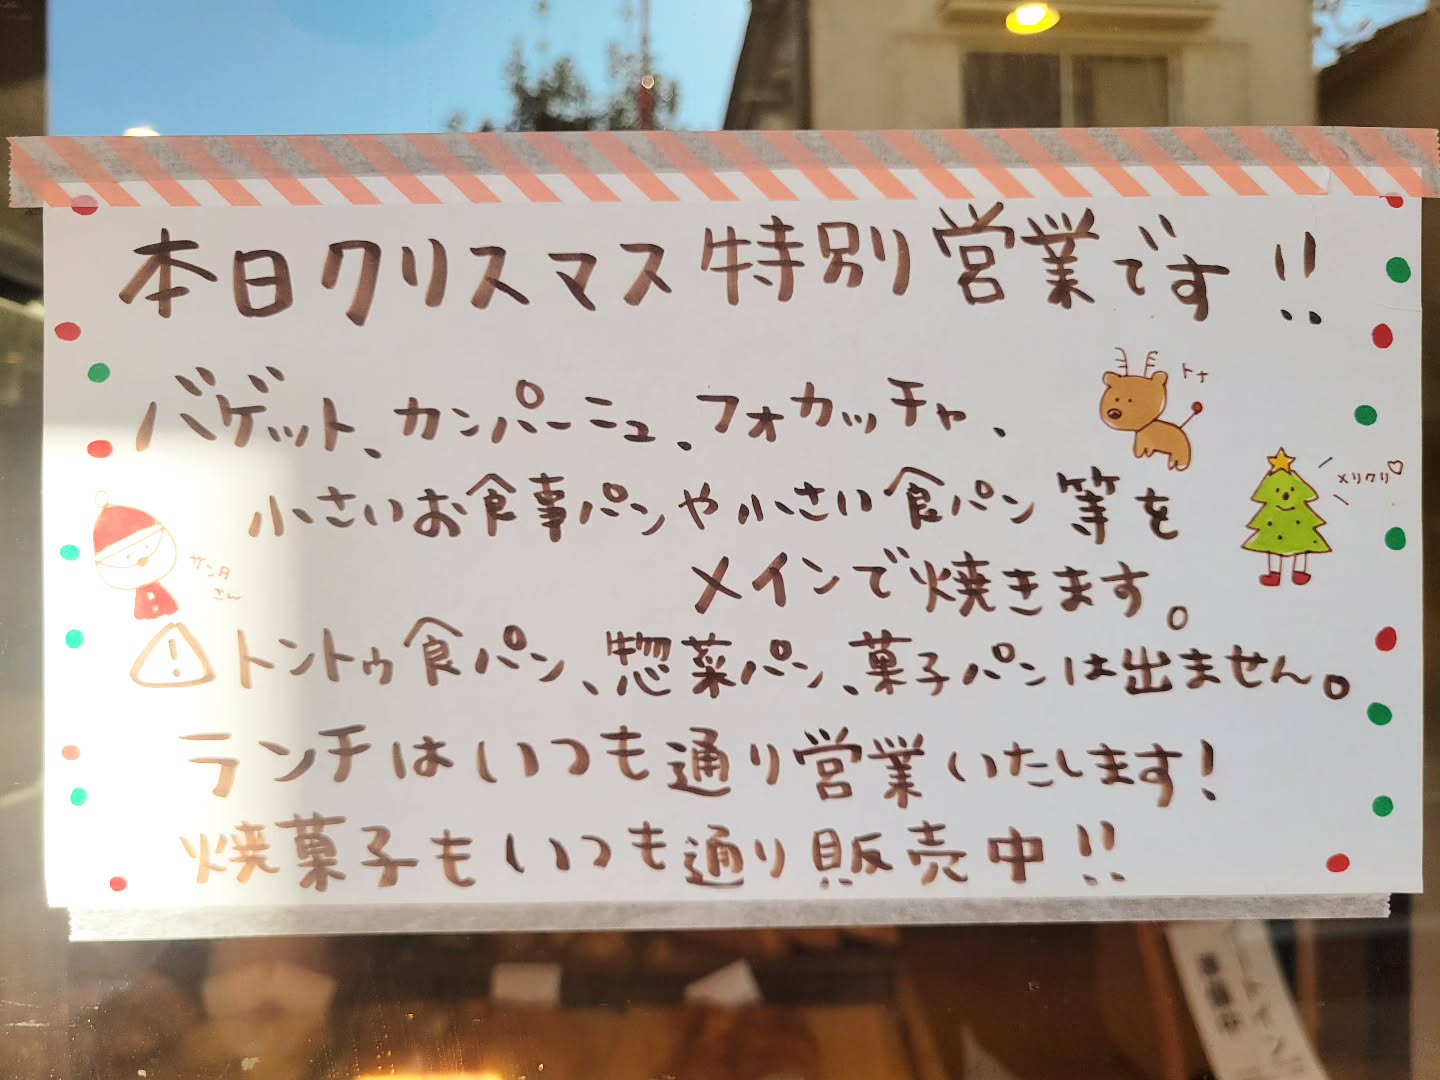 本日クリスマス特別営業です!!
バゲット、カンパーニュ、フォカッチャ、
トナ
メリクリ♡
小さいお食事パンや小さい食パン等を
サンタ
さん
メインで焼きます。
トントゥ食パン、惣菜パン、菓子パンは出ません。
ランチはいつも通り営業いたします!
焼菓子もいつも通り販売中!!